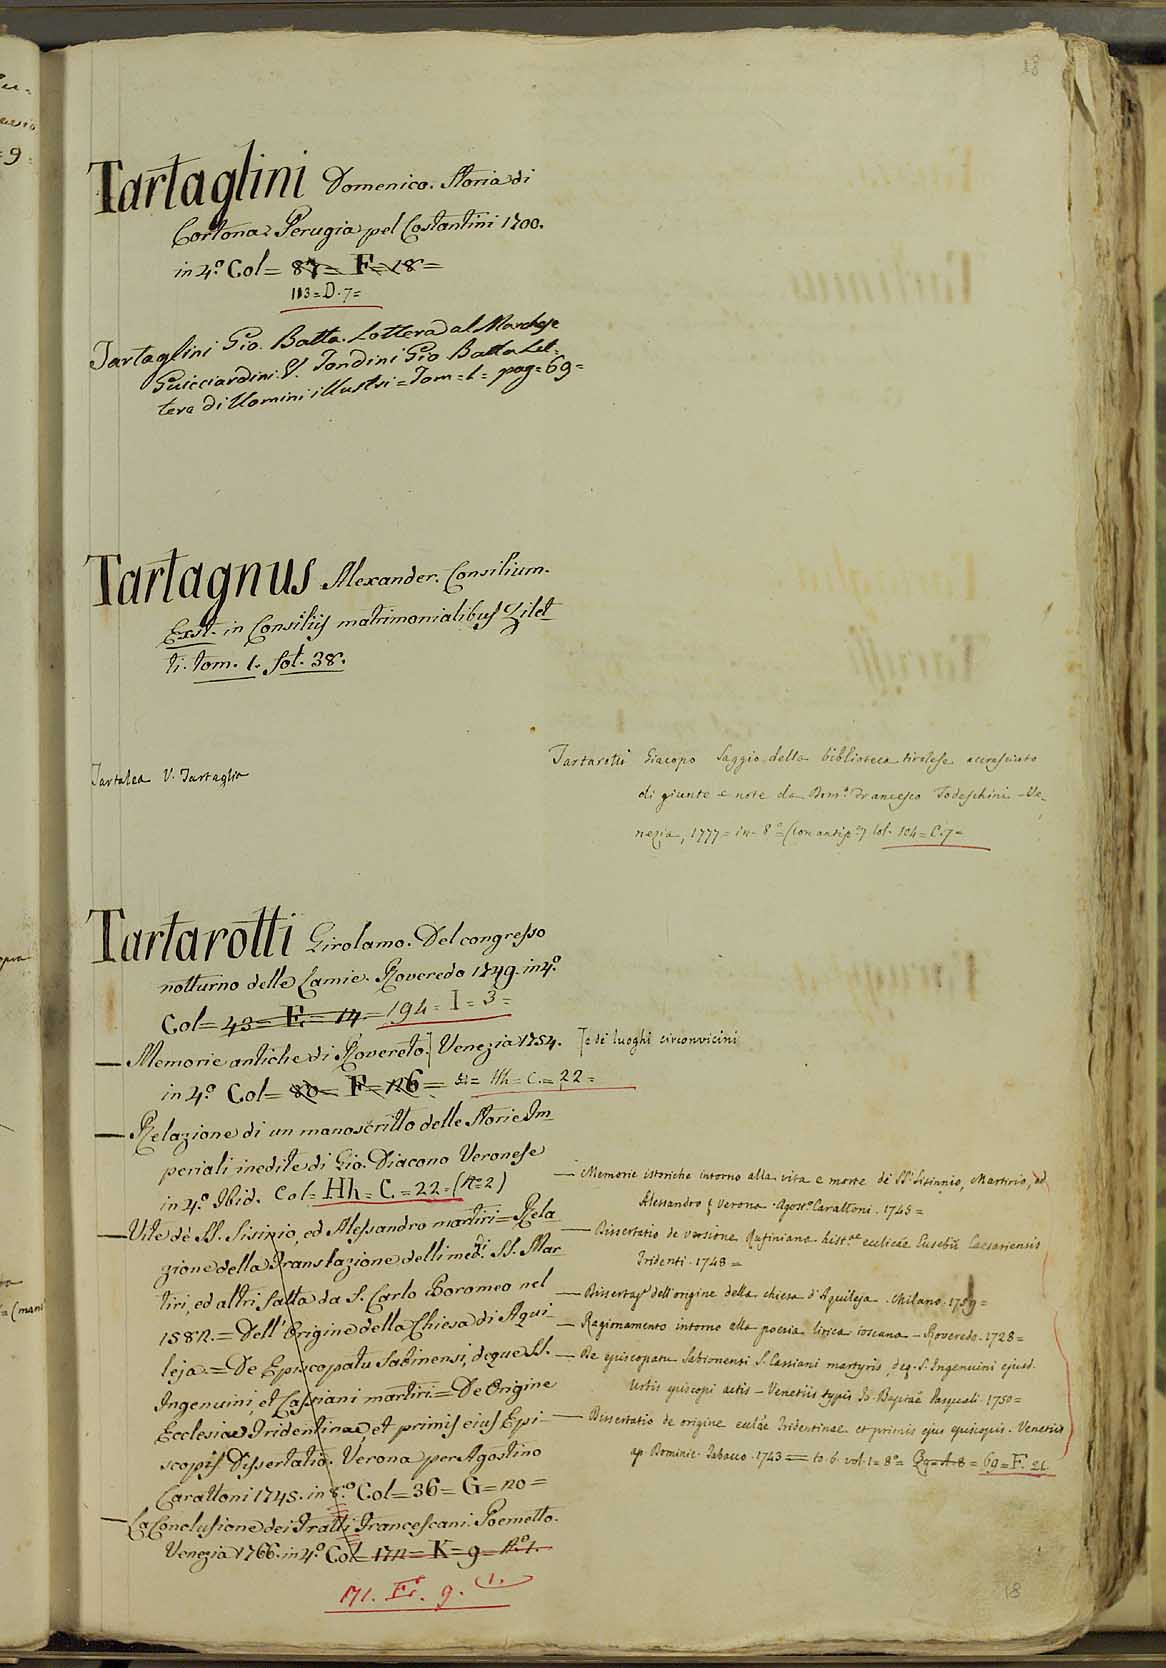 18
Tartaglini Domenico. Storia di
Cortona. Perugia pel Costantini 1700.
in 4.º Col= 87= F=18=
113=D.7=
Tartaglini Gio. Batta. Lettera al Marchese
Guicciardini. V. Tondini Gio Batta Let=
tera di Uomini illustri=Tom=1= pag=69=
Tartagnus Alexander. Consilium.
Exst. in Consiliis matrimonialibus Zilet
ti. tom. 1. fol. 38.
Tartalea V. Tartaglia
Tartarotti Giacopo Saggio della biblioteca tirolese accresciuto
di giunte e note da Dom.º Francesco Todeschini - Ve=
nezia, 1777= in- 8º= (con antip.ª) Col. 104= C.7=
Tartarotti Girolamo. Del congresso
notturno delle Lamie. Roveredo 1749. in 4º.
Col= 43= E= 14=194= I= 3=
— Memorie antiche di Rovereto.] Venezia 1754. [e dei luoghi circonvicini
in 4.º Col= 80= F=126= Hh= C.= 22=
— Relazione di un manoscritto delle Storie Im
periali inedite di Gio. Diacono Veronese
in 4.º Ibid. Col= Hh= C.=22=(Nº2)
— Vite dè SS. Sisinio, ed Alessandro martiri=Rela
zione della Translazione delli med.di SS. Mar
tiri, ed altri fatta da S. Carlo Boromeo nel
1582.= Dell'Origine della Chiesa di Aqui-
leja.= De Episcopatu Sabinensi, deque SS.
Ingenuini, et Cassiani martiri.= De Origine
Ecclesiae Tridentinae, et primis eius Epi-
scopis Dissertatio. Verona per Agostino
Carattoni 1745. in 8.º Col=36= G= 20=
— La Conclusione dei Fratti Francescani. Poemetto.
Venezia 1766. in 4.º Col=172= K= 9= Nº.1.
171. F. 9. (1.
— Memorie istoriche intorno alla vita e morte de SS. Sisinnio, Martirio, ed
Alessandro Verona. Agost.º Carattoni. 1745=
— Dissertatio de versione Rufiniana hist.ae Eusebii Caesariensis
Tridenti. 1748=
— Dissertaz.e dell'origine della chiesa d'Aquileja. Milano. 1759=
— Ragionamento intorno alla poesia lirica toscana - Roveredo. 1728=
— De episcopatu Sabionensi S. Cassiani martyris, deq. S. Ingenuini ejusd.
Urbis episcopi actis - Venetiis typis Jo. Baptae Pasquali. 1750=
— Dissertatio de origine Tridentinae et primis ejus episcopis. Venetiis
ap. Dominic. Tabacco. 1743= to. 6. vol. 1= 8º= 69= F. 26.
18